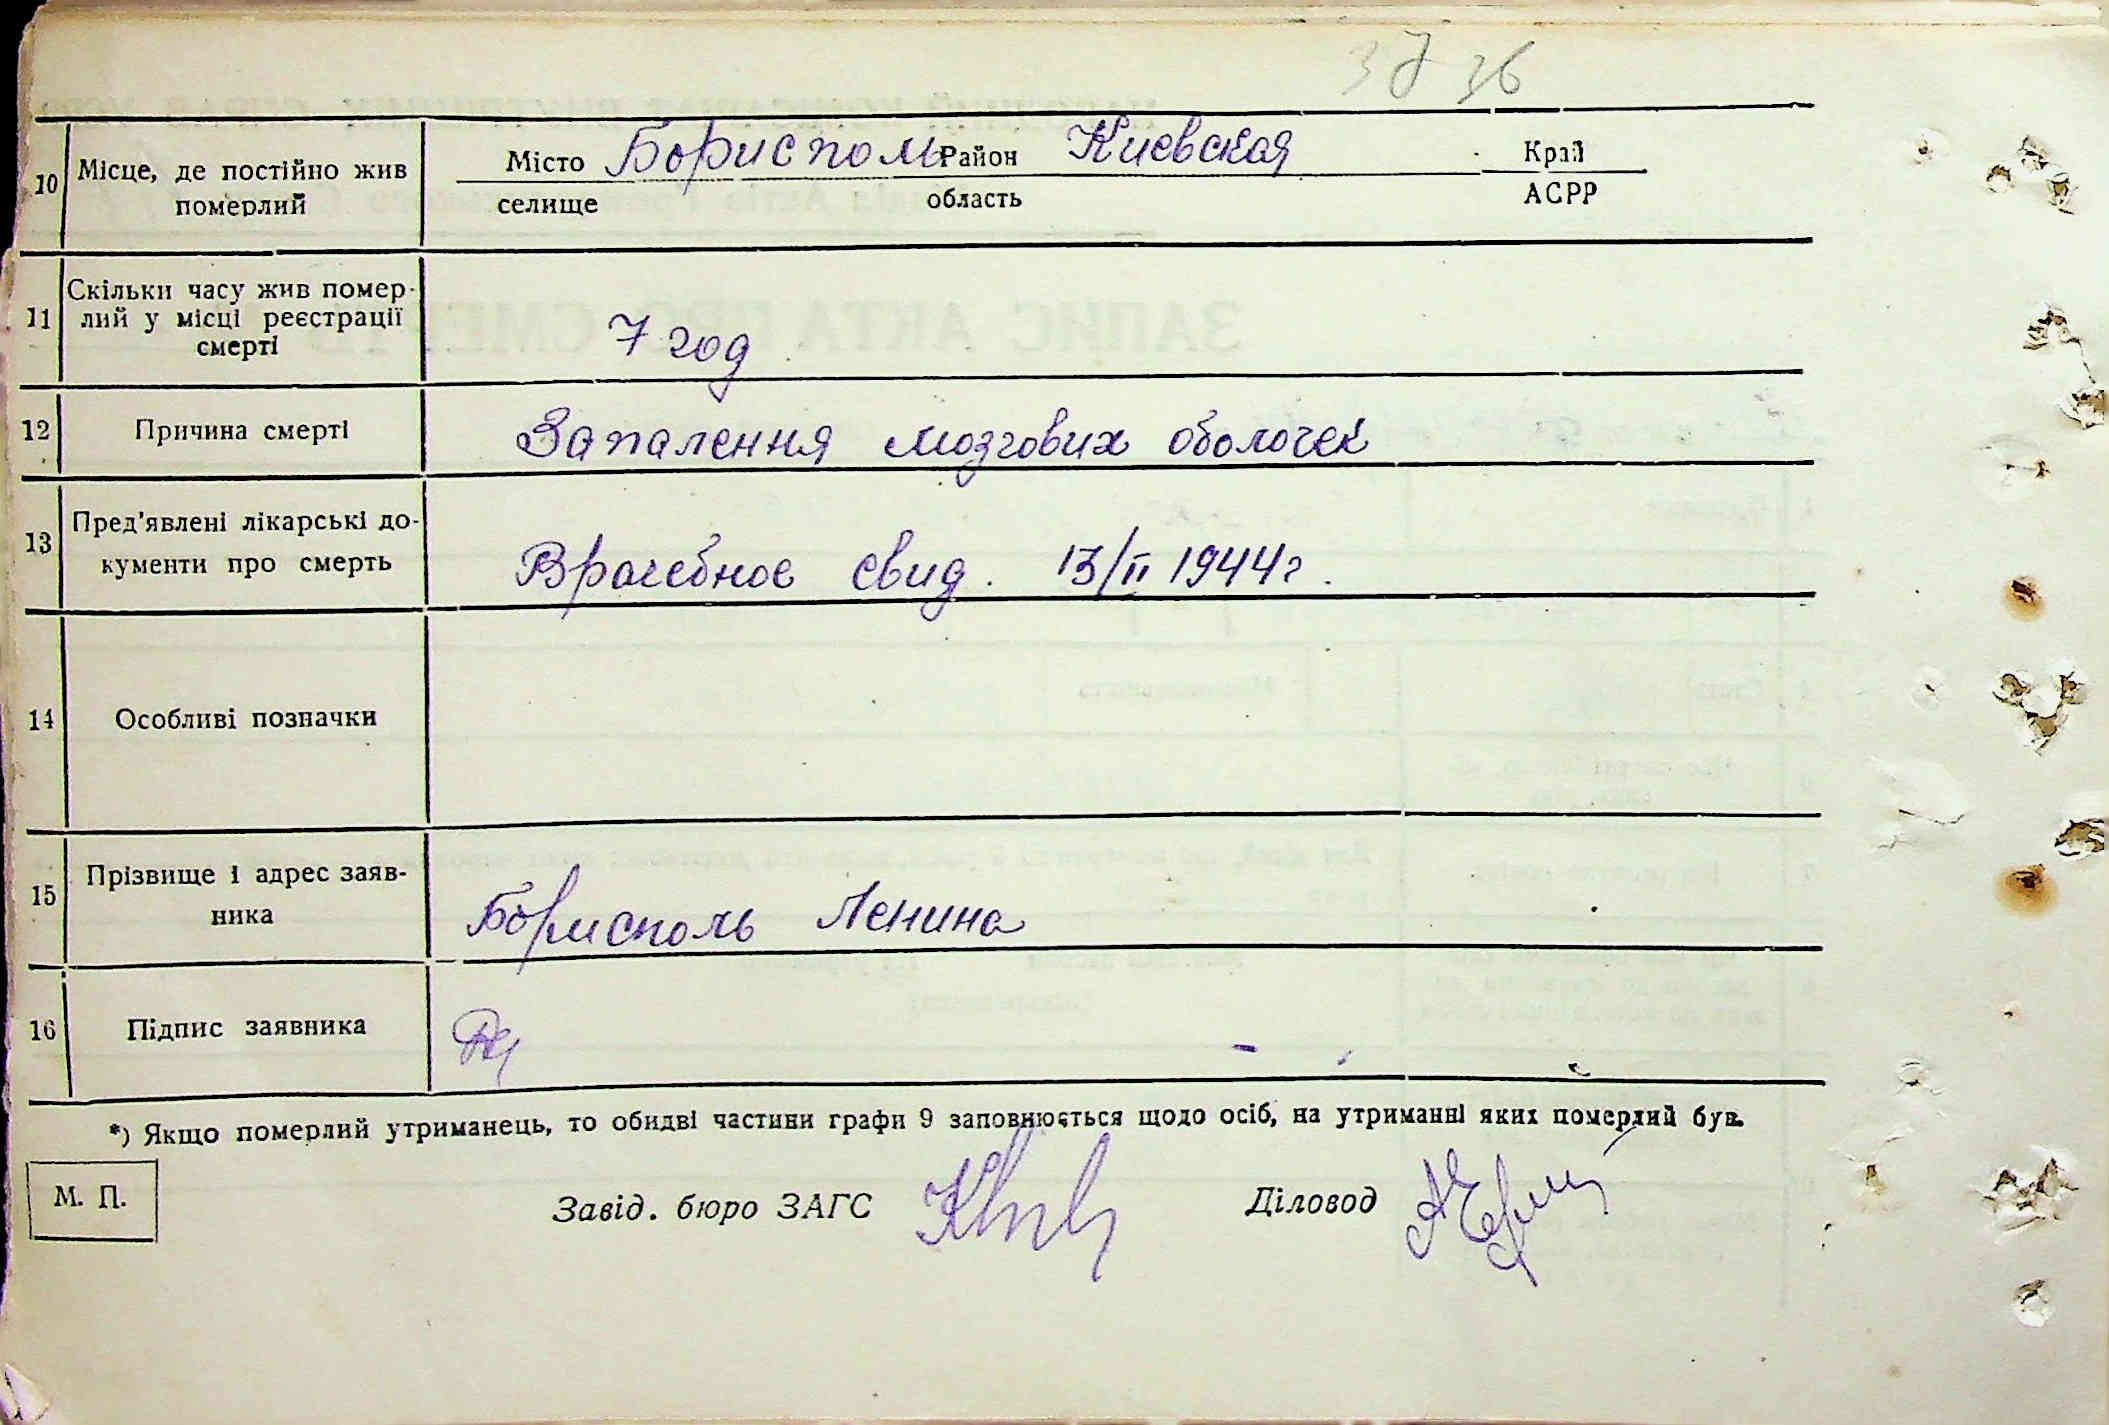 36
10 Місце, де постійно жив померлий
Місто Борисполь Район Киевская Край
селище область АСРР
11 Скільки часу жив помер-
лий у місці реєстрації
смерті
7 год
12 Причина смерті Запалення мозгових оболочек
13 Пред'явлені лікарські до-
кументи про смерть
Врачебное свид. 13/II 1944г.
14 Особливі позначки
15 Прізвище і адрес заяв-
ника
Борисполь Ленина
16 Підпис заявника
*) Якщо померлий утриманець, то обидві частини графи 9 заповнюється щодо осіб, на утриманні яких померлий був.
М. П.
Завід. бюро ЗАГС Діловод